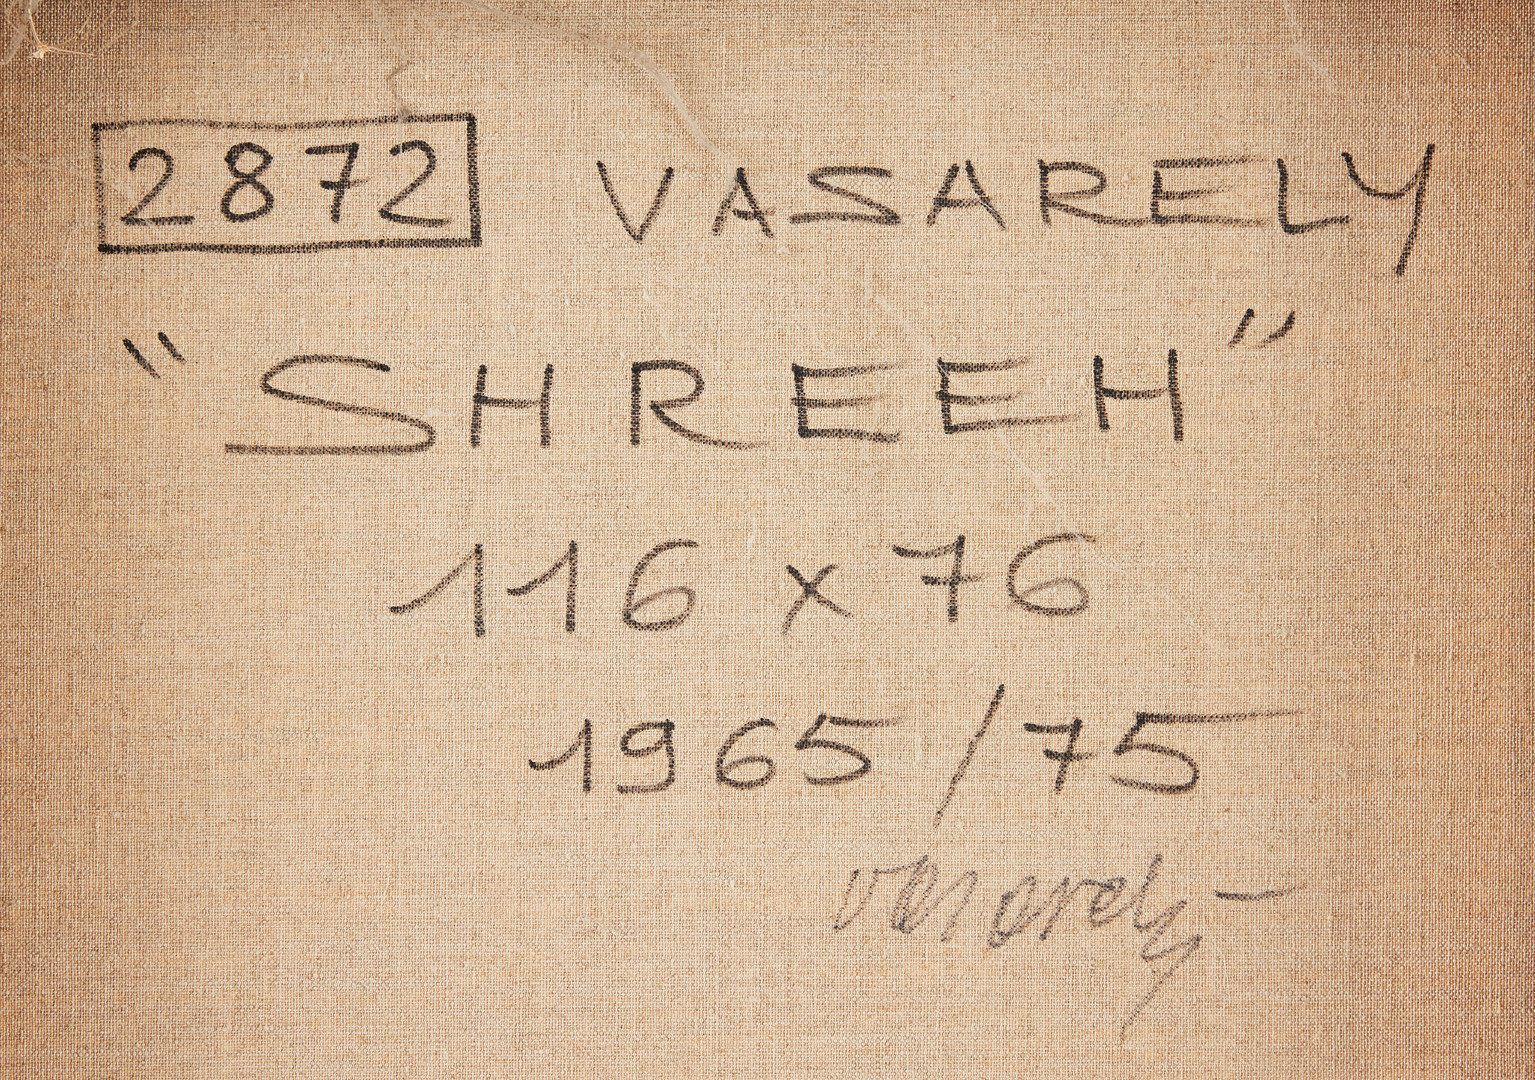 2872 VASARELY
"SHREEH"
116 x 76
1965/75
Vasarely